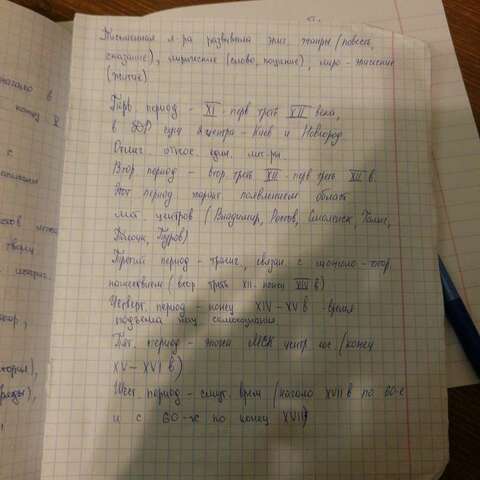 Письменная л-ра развивала эпич. жанры (повесть,
сказание), лирические (слово, поучение), лиро-эпические
(житие)
Перв период - XI - перв треть XII века,
в ДР сущ 2 центра - Киев и Новгород
Отлич. относ. един. лит-ры.
Втор период - втор. треть XII - перв треть XIII в.
Этот период характ появлением област
лит. центров (Владимир, Ростов, Смоленск, Галич,
Полоцк, Туров)
Третий период - трагич, связан с монголо-татар
нашествием (втор треть XIII - конец XIV в)
Четверт. период - конец XIV - XV в - время
подъема нац самосознания
Пят. период - эпоха МСК центр гос (конец
XV - XVI в)
Шест период - смут. врем (начало XVII в по 60-е
и с 60-х по конец XVII)
начало в
конец X
с